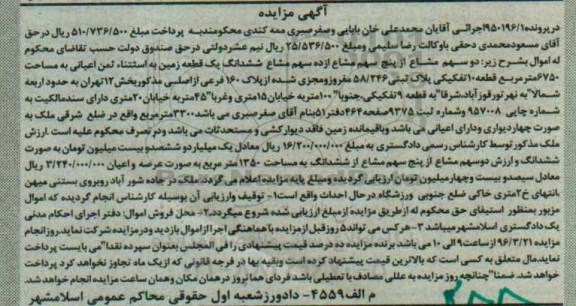 آگهی مزایده
درپرونده950196/1اجرائی آقایان محمدعلی خان بابایی وصفرصبری ممه کندی محکومندبه پرداخت مبلغ 510/736/500 ریال درحق
آقای مسعودمحمدی دحقی باوکالت رضا سلیمی ومبلغ 25/536/500 ریال نیم عشردولتی درحق صندوق دولت حسب تقاضای محکوم
له اموال بشرح زیر: دوسهم مشاع از پنج سهم مشاع ازده سهم مشاع ششدانگ یک قطعه زمین به استثناء ثمن اعیانی به مساحت
6750مترمربع قطعه10تفکیکی پلاک ثبتی 58/246 مفروزومجزی شده ازپلاک 160 فرعی ازاصلی مذکوربخش12تهران به حدود اربعه
شمالا"به نهر تورقوزآباد،شرقا"به قطعه 9تفکیکی،جنوبا" 100متربه خیابان15متری وغربا"45متربه خیابان20متری دارای سندمالکیت به
شماره چاپی 957008 وشماره ثبت 9375صفحه464دفتر51بنام آقای صفرصبری می باشد3300مترمربع واقع در ضلع شرقی ملک به
صورت چهاردیواری ودارای اعیانی می باشد وباقیمانده زمین فاقد دیوارکشی و مستحدثات می باشد ودر تصرف محکوم علیه است .ارزش
ملک مذکور توسط کارشناس رسمی دادگستری به مبلغ 16/200/000/000 ریال معادل یک میلیاردو ششصدوبیست میلیون تومان به صورت
ششدانگ و ارزش دوسهم مشاع از پنج سهم مشاع از ششدانگ به مساحت 1350 متر مربع به صورت عرصه و اعیان 3/240/000/000 ریال
معادل سیصدو بیست وچهارمیلیون تومان ارزیابی گردیده ومبلغ پایه مزایده اعلام می گردد. ملک در جاده شور آباد روبروی بستنی میهن
،انتهای خ2متری خاکی ضلع جنوبی ورزشگاه در حال احداث واقع است1- توقیف وارزیابی آن بوسیله کارشناس انجام گردیده که اموال
مزبور بمنظور استیفای حق محکوم له ازطریق مزایده از مبلغ ارزیابی شده شروع میگردد.2- محل فروش اموال: دفتر اجرای احکام مدنی
یک دادگستری اسلامشهرمیباشد 3- هرکس می تواند5 روزقبل از مزایده با هماهنگی اجرا ازاموال بازدید ودر مزایده شرکت نماید.روز انجام
مزایده 96/3/21 ازساعت9 الی 10 می باشد برنده مزایده ده درصد قیمت پیشنهادی را فی المجلس بعنوان سپرده نقدا"می بایست پرداخت
نماید.مال متعلق به کسی است که بالاترین قیمت پیشنهاد کرده است وبقیه بها در فرجه قانونی که ازیک ماه تجاوز نخواهد کرد پرداخت
خواهد شد. ضمنا"چنانچه روز مزایده به عللی مصادف با تعطیلی باشد فردای همانروز درهمان مکان وهمان ساعت مزایده انجام خواهد شد.
م الف4559- دادورزشعبه اول حقوقی محاکم عمومی اسلامشهر